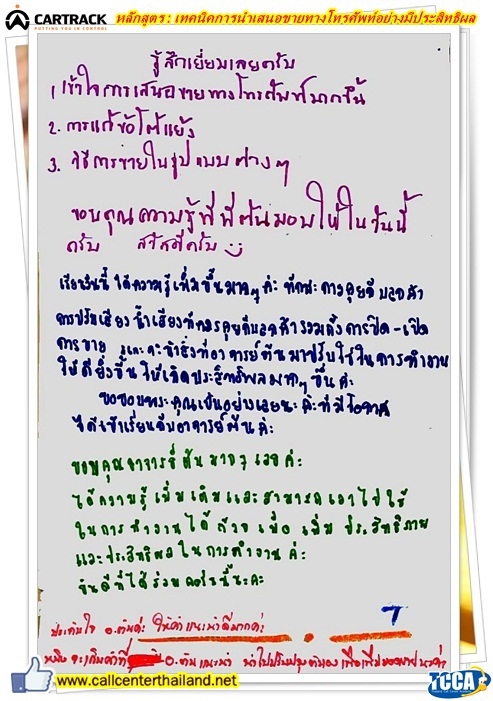 CARTRACK
PUTTING YOU IN CONTROL
หลักสูตร : เทคนิคการนำเสนอขายทางโทรศัพท์อย่างมีประสิทธิผล
รู้สึกเยี่ยมเลยครับ
1. เข้าใจการเสนอขายทางโทรศัพท์มากขึ้น
2. การแก้ข้อโต้แย้ง
3. วิธีการขายในรูปแบบต่างๆ
ขอบคุณความรู้ที่พี่ต้นมอบให้ในวันนี้
ครับ สวัสดีครับ
เรียนวันนี้ ได้ความรู้เพิ่มขึ้นมากๆ ค่ะ ทักษะการคุยกับลูกค้า
การปรับเสียง น้ำเสียงที่ควรคุยกับลูกค้า รวมทั้งการปิด-เปิด
การขาย และจะนำสิ่งที่อาจารย์ต้นมาปรับใช้ในการทำงาน
ให้ดียิ่งขึ้น ให้เกิดประสิทธิผลมากๆ ขึ้นค่ะ
ขอขอบพระคุณเป็นอย่างเลยนะค่ะที่มีโอกาส
ได้เข้าเรียนกับอาจารย์ต้นค่ะ
ขอบคุณอาจารย์ต้นมากๆ เลยค่ะ
ได้ความรู้เพิ่มเติมและสามารถเอาไปใช้
ในการทำงานได้ด้วย เพื่อเพิ่มประสิทธิภาพ
และประสิทธิผลในการทำงานค่ะ
ยินดีที่ได้ร่วมคอร์สนี้นะคะ
ประทับใจ อ.ต้นค่ะ ให้คำแนะนำดีมากค่ะ
หนึ่ง จะเก็บคำที่ อ.ต้นแนะนำ นำไปปรับปรุงตัวเอง
www.callcenterthailand.net
TCCA